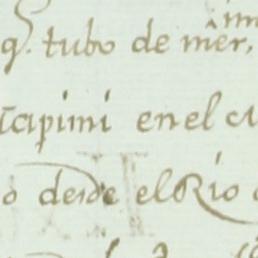 q. tubo de mêr,
capimi en el
o desde el Rio